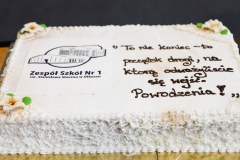 Zespół Szkół Nr 1
im. Stanisława Staszica w
"To nie koniec - to
początek drogi, na
którą odważyliście
się wejść.
Powodzenia!"